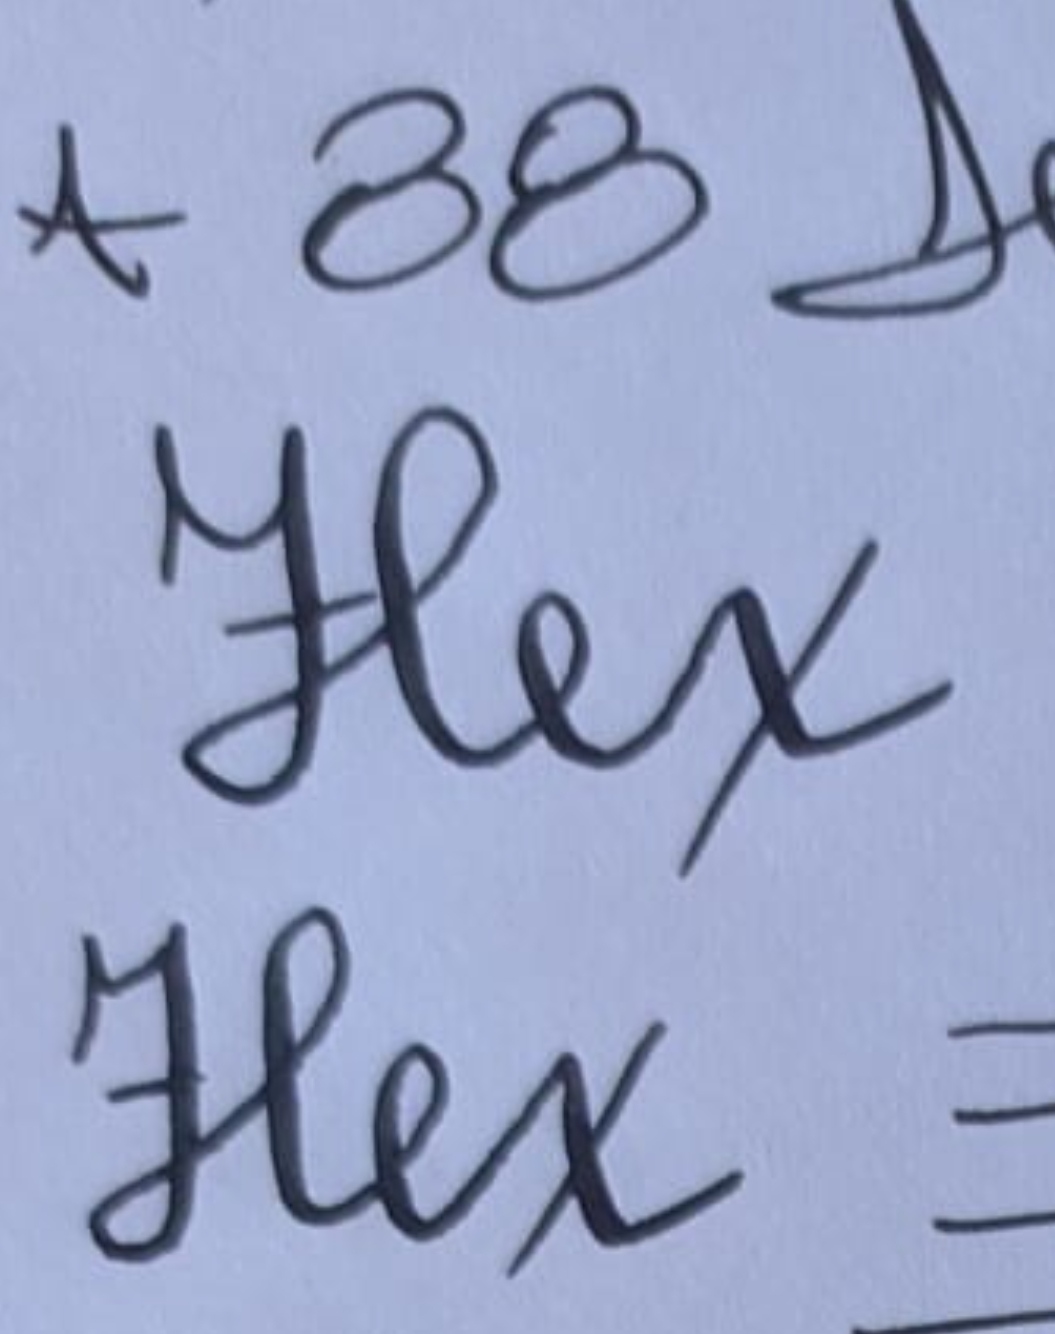 88
Flex
Flex